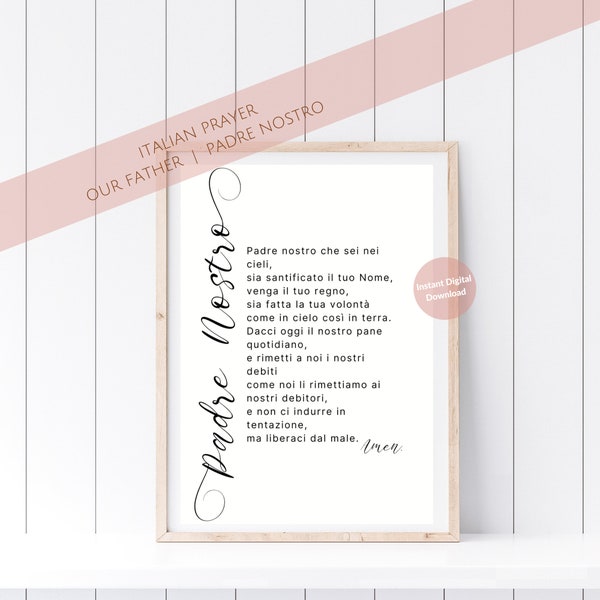 ITALIAN PRAYER
OUR FATHER | PADRE NOSTRO
Padre Nostro
Padre nostro che sei nei
cieli,
sia santificato il tuo Nome,
venga il tuo regno,
sia fatta la tua volontà
come in cielo così in terra.
Dacci oggi il nostro pane
quotidiano,
e rimetti a noi i nostri
debiti
come noi li rimettiamo ai
nostri debitori,
e non ci indurre in
tentazione,
ma liberaci dal male.
Amen.
Instant Digital
Download